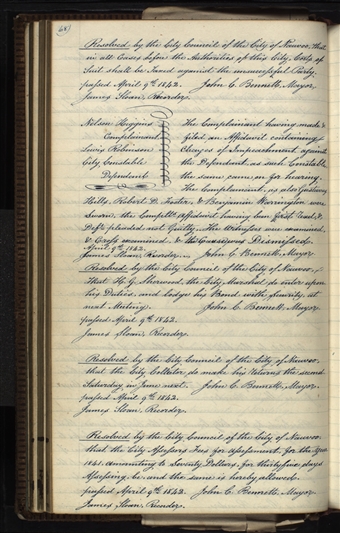 68
Resolved by the City Council of the City of Nauvoo, that
in all Cases before the Authorities of this City, Costs of
Suit shall be taxed against the unsuccessful Party.
passed April 9th 1842. John C. Bennett, Mayor.
James Sloan, Recorder.
Nelson Higgins
Complainant
Lewis Robinson
City Constable
Defendant
The Complainant having made &
filed an Affidavit containing
charges of Impeachment against
the Defendant, as such Constable
the same came on for hearing.
The Complainant, as also Gustavus
Hills, Robert D. Foster, & Benjamin Warrington were
Sworn, the Compts Affidavit having been first read, &
Deft pleaded not Guilty, the Witnesses were examined,
& Cross examined, & the Case was Dismissed.
April 9th 1842.
James Sloan, Recorder. John C. Bennett, Mayor
Resolved by the City Council of the City of Nauvoo,
that H. G. Sherwood, the City Marshal do enter upon
his Duties, and lodge his Bond with Security, at
next Meeting. John C. Bennett, Mayor
passed April 9th 1842.
James Sloan, Recorder.
Resolved by the City Council of the City of Nauvoo
that the City Collector, do make his returns the second
Saturday in June next. John C. Bennett, Mayor.
passed April 9th 1842.
James Sloan, Recorder.
Resolved by the City Council of the City of Nauvoo
that the City Assessors Fees for Assessment, for the year
1841. amounting to Seventy Dollars, for thirtyfive days
Assessing &c. and the same is hereby allowed.
passed April 9th 1842. John C. Bennett, Mayor.
James Sloan, Recorder.